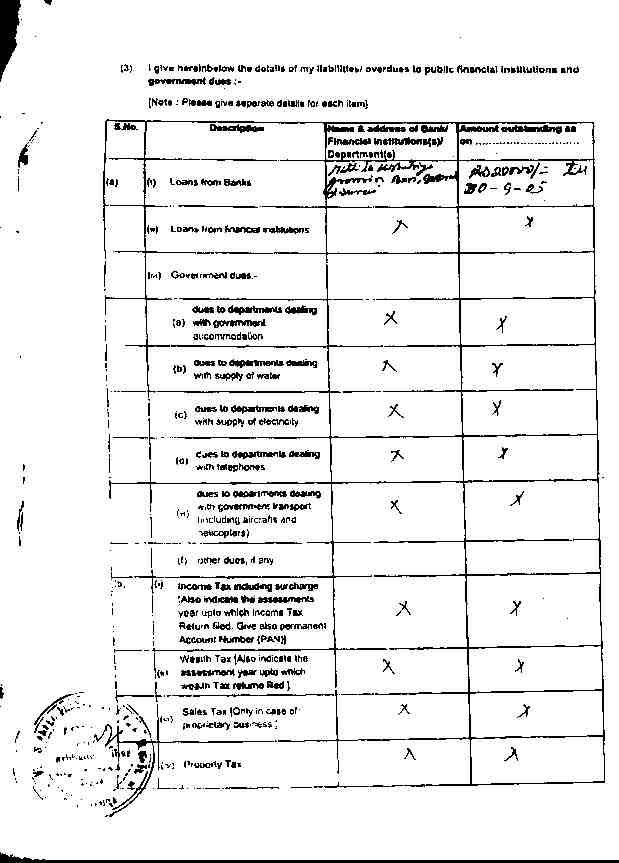 (3) I give hereinbelow the details of my liabilities/ overdues to public financial institutions and
government dues :-
[Note : Please give separate details for each item]
S.No. Description Name & address of Bank/
Financial Institutions(s)/
Department(s) Amount outstanding as
on ..............................
(a) (i) Loans from Banks
30-9-05
(ii) Loans from financial institutions X X
(iii) Government dues:-
(a) dues to departments dealing
with government
accommodation X X
(b) dues to departments dealing
with supply of water X X
(c) dues to departments dealing
with supply of electricity X X
(d) dues to departments dealing
with telephones X X
dues to departments dealing
with government transport
(including aircrafts and
helicopters) X X
(f) other dues, if any
b. (i) Income Tax including surcharge
[Also indicate the assessments
year upto which Income Tax
Return filed. Give also permanent
Account Number (PAN)] X X
(ii) Wealth Tax [Also indicate the
assessment year upto which
wealth Tax returns Red ] X X
(iii) Sales Tax [Only in case of
proprietary business ] X X
(iv) Property Tax X X